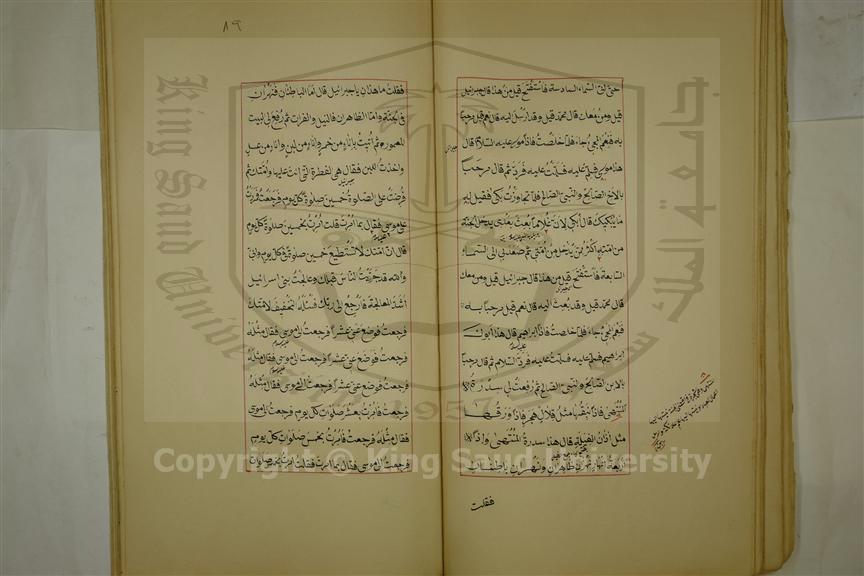 ٨٩
حتى اتى السماء السادسة فاستفتح قيل من هذا قال جبرائيل
قيل ومن معك قال محمد قيل وقد ارسل اليه قال نعم قيل مرحبا
به فنعم المجئ جاء فلما خلصت فاذا موسى عليه السلام قال
هذا موسى فسلم عليه فسلمت عليه فرد ثم قال مرحبا
بالاخ الصالح والنبي الصالح فلما تجاوزت بكى فقيل له
ما يبكيك قال ابكى لان غلاما بعث بعدى يدخل الجنة
من امته اكثر ممن يدخل من امتى ثم صعد بى الى السماء
السابعة فاستفتح قيل من هذا قال جبرائيل قيل ومن معك
قال محمد قيل وقد بعث اليه قال نعم قيل مرحبا به
فنعم المجئ جاء فلما خلصت فاذا ابراهيم قال هذا ابوك
ابراهيم فسلم عليه فسلمت عليه فرد السلام ثم قال مرحبا
بالابن الصالح والنبي الصالح ثم رفعت الى سدرة
المنتهى فاذا نبقها مثل قلال هجر فاذا ورقها
مثل اذان الفيلة قال هذا سدرة المنتهى واذا
اربعة انهار نهران ظاهران ونهران باطنان
فقلت
فقلت ما هذان يا جبرائيل قال اما الباطنان فنهران
في الجنة واما الظاهران فالنيل والفرات ثم رفع لى البيت
المعمور ثم اتيت باناء من خمر واناء من لبن واناء من عسل
واخذت اللبن فقال هى الفطرة التى انت عليها وامتك ثم
فرضت على الصلوة خمسين صلوة كل يوم فرجعت فمررت
على موسى فقال بما امرت قلت امرت بخمسين صلوة كل يوم
قال ان امتك لا تستطيع خمسين صلوة كل يوم وانى
والله قد جربت الناس قبلك وعالجت بنى اسرائيل
اشد المعالجة فارجع الى ربك فسئله التخفيف لامتك
فرجعت فوضع عنى عشرا فرجعت الى موسى فقال مثله
فرجعت فوضع عنى عشرا فرجعت الى موسى فقال مثله
فرجعت فوضع عنى عشرا فرجعت الى موسى فقال مثله
فرجعت فامرت بعشر صلوات كل يوم فرجعت الى موسى
فقال مثله فرجعت فامرت بخمس صلوات كل يوم
فرجعت الى موسى فقال بما امرت فقلت امرت بخمس صلوات
جامعة الملك سعود
King Saud University
1957
Copyright © King Saud University